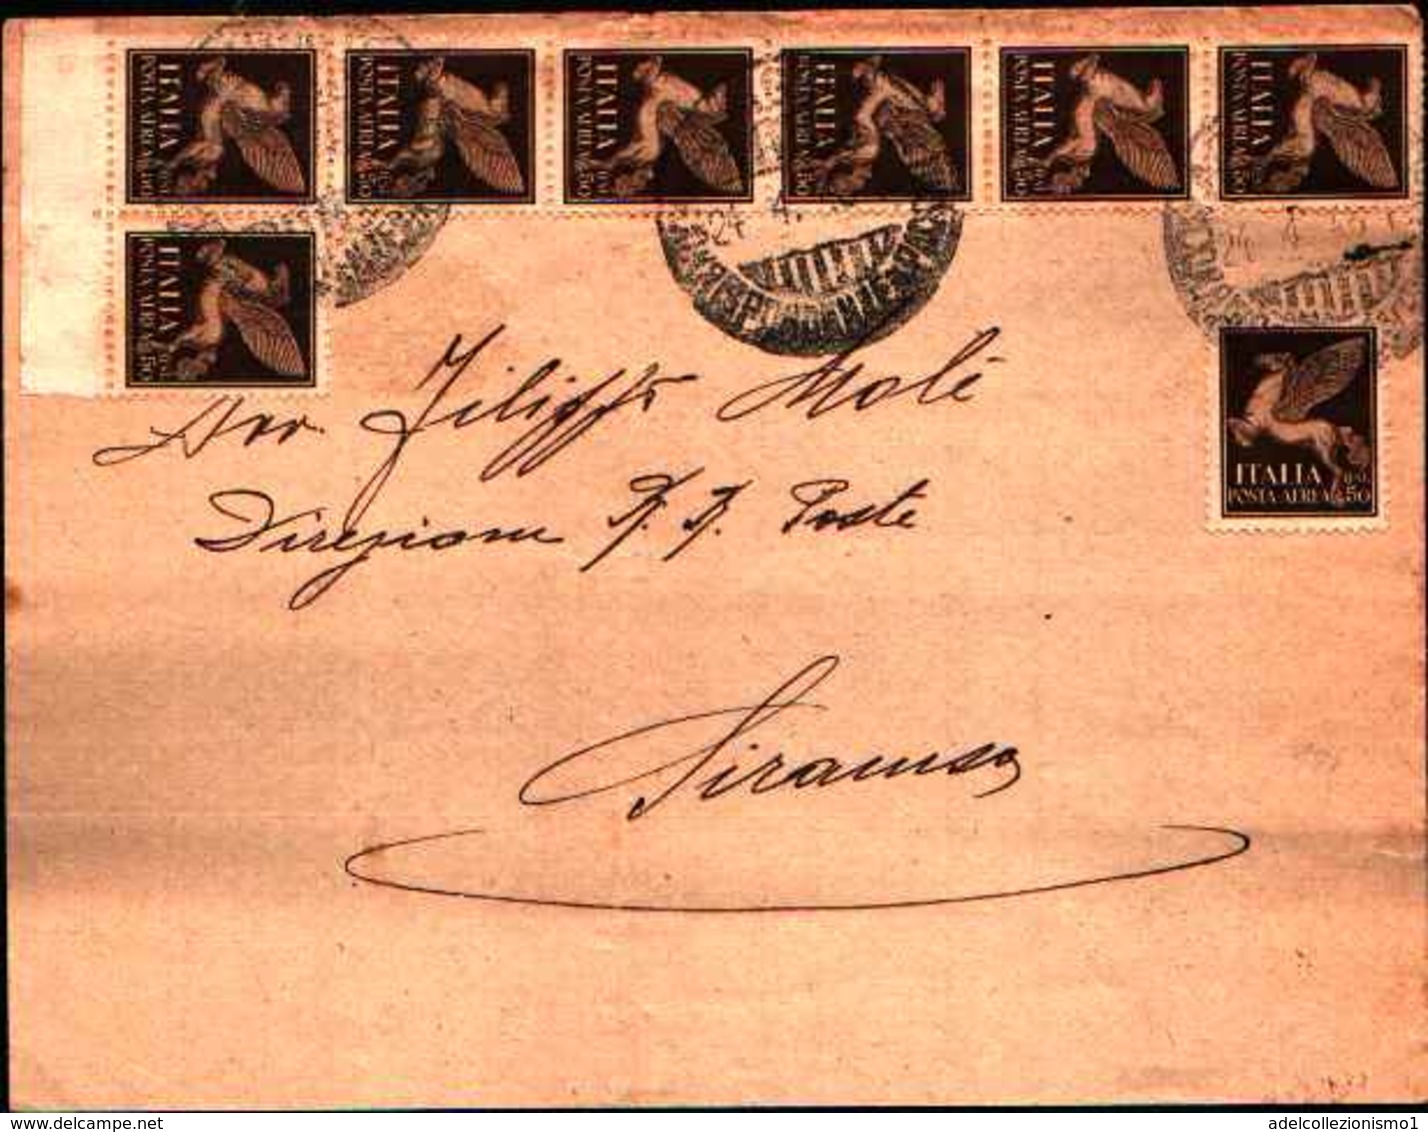 ITALIA
POSTA AEREA C.50
ITALIA
POSTA AEREA C.50
ITALIA
POSTA AEREA C.50
ITALIA
POSTA AEREA C.50
ITALIA
POSTA AEREA C.50
ITALIA
POSTA AEREA C.50
ITALIA
POSTA AEREA C.50
24 4
24 4
ITALIA
POSTA AEREA C.50
Filippo Molè
Direzione Poste
Siracusa
delcampe.net
adelcollezionismo1